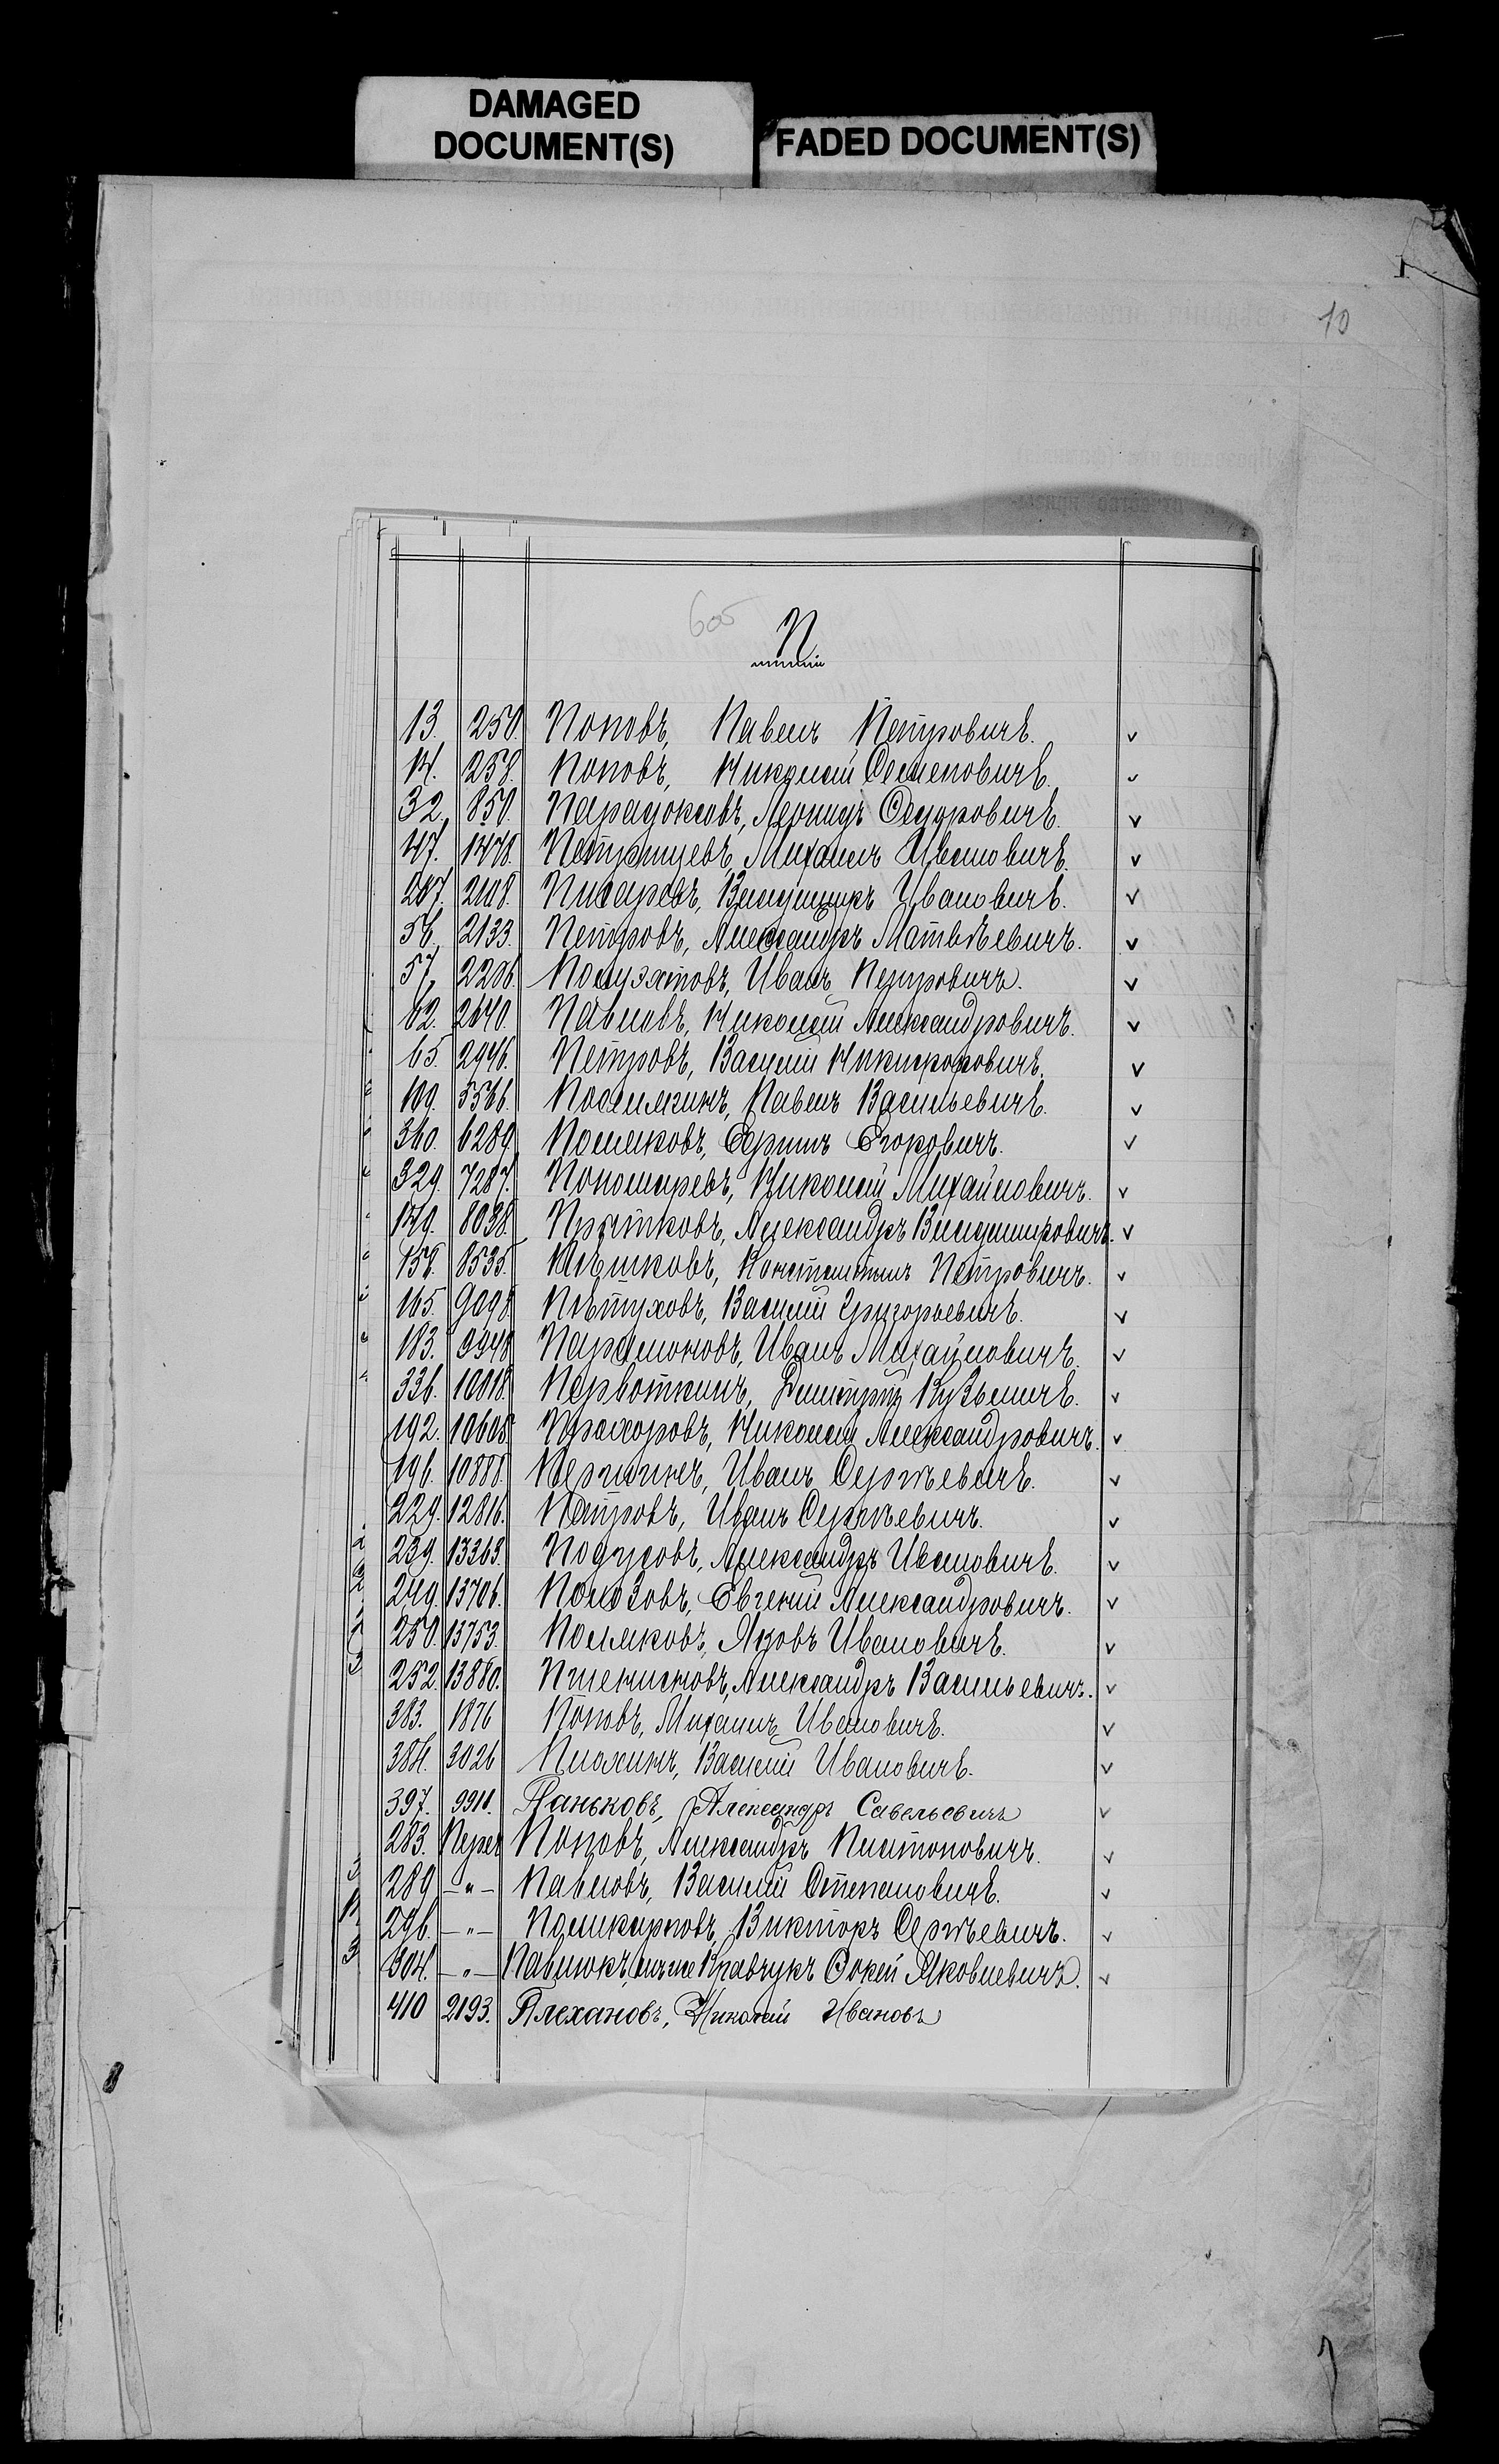 DAMAGED DOCUMENT(S)
FADED DOCUMENT(S)
10
600
П
13. 250. Поповъ, Павелъ Петровичъ. v
14. 258. Поповъ, Николай Семеновичъ. v
32. 850. Парадоксовъ, Леонидъ Федоровичъ. v
47. 1478. Петрищевъ, Михаилъ Ивановичъ. v
287. 2118. Писаревъ, Владимиръ Ивановичъ. v
56. 2133. Петровъ, Александръ Матвѣевичъ. v
57. 2206. Полуэктовъ, Иванъ Петровичъ. v
62. 2640. Павловъ, Николай Александровичъ. v
65. 2946. Петровъ, Василій Никифоровичъ. v
109. 5566. Павелъ Васильевичъ. v
360. 6289. Поляковъ, Егоровичъ. v
329. 7287. Пономаревъ, Николай Михайловичъ. v
140. 8038. Прытковъ, Александръ Владимировичъ. v
158. 8535. Плѣшковъ, Константинъ Петровичъ. v
165. 9098. Пѣтуховъ, Василій Григорьевичъ. v
183. 9948. Парамоновъ, Иванъ Михайловичъ. v
336. 10018. Первоткинъ, Димитрій Кузьмичъ. v
192. 10605. Прохоровъ, Николай Александровичъ. v
196. 10888. Першинъ, Иванъ Сергѣевичъ. v
229. 12816. Петровъ, Иванъ Сергѣевичъ. v
239. 13363. Подусовъ, Александръ Ивановичъ. v
249. 13706. Полозовъ, Евгеній Александровичъ. v
250. 13753. Поляковъ, Яковъ Ивановичъ. v
252. 13880. Пшенисновъ, Александръ Васильевичъ. v
383. 1876 Поповъ, Михаилъ Ивановичъ. v
384. 3026 Пиохинъ, Василій Ивановичъ. v
397. 9910. Паньковъ, Александръ Савельевичъ v
283. Перех Поповъ, Александръ Платоновичъ. v
289 —"— Павловъ, Василій Степановичъ. v
296. —"— Поликарповъ, Викторъ Сергѣевичъ. v
304. —"— Павлюкъ, онъ же Кравчукъ Фокей Яковлевичъ. v
410 2193. Плехановъ, Николай Ивановъ